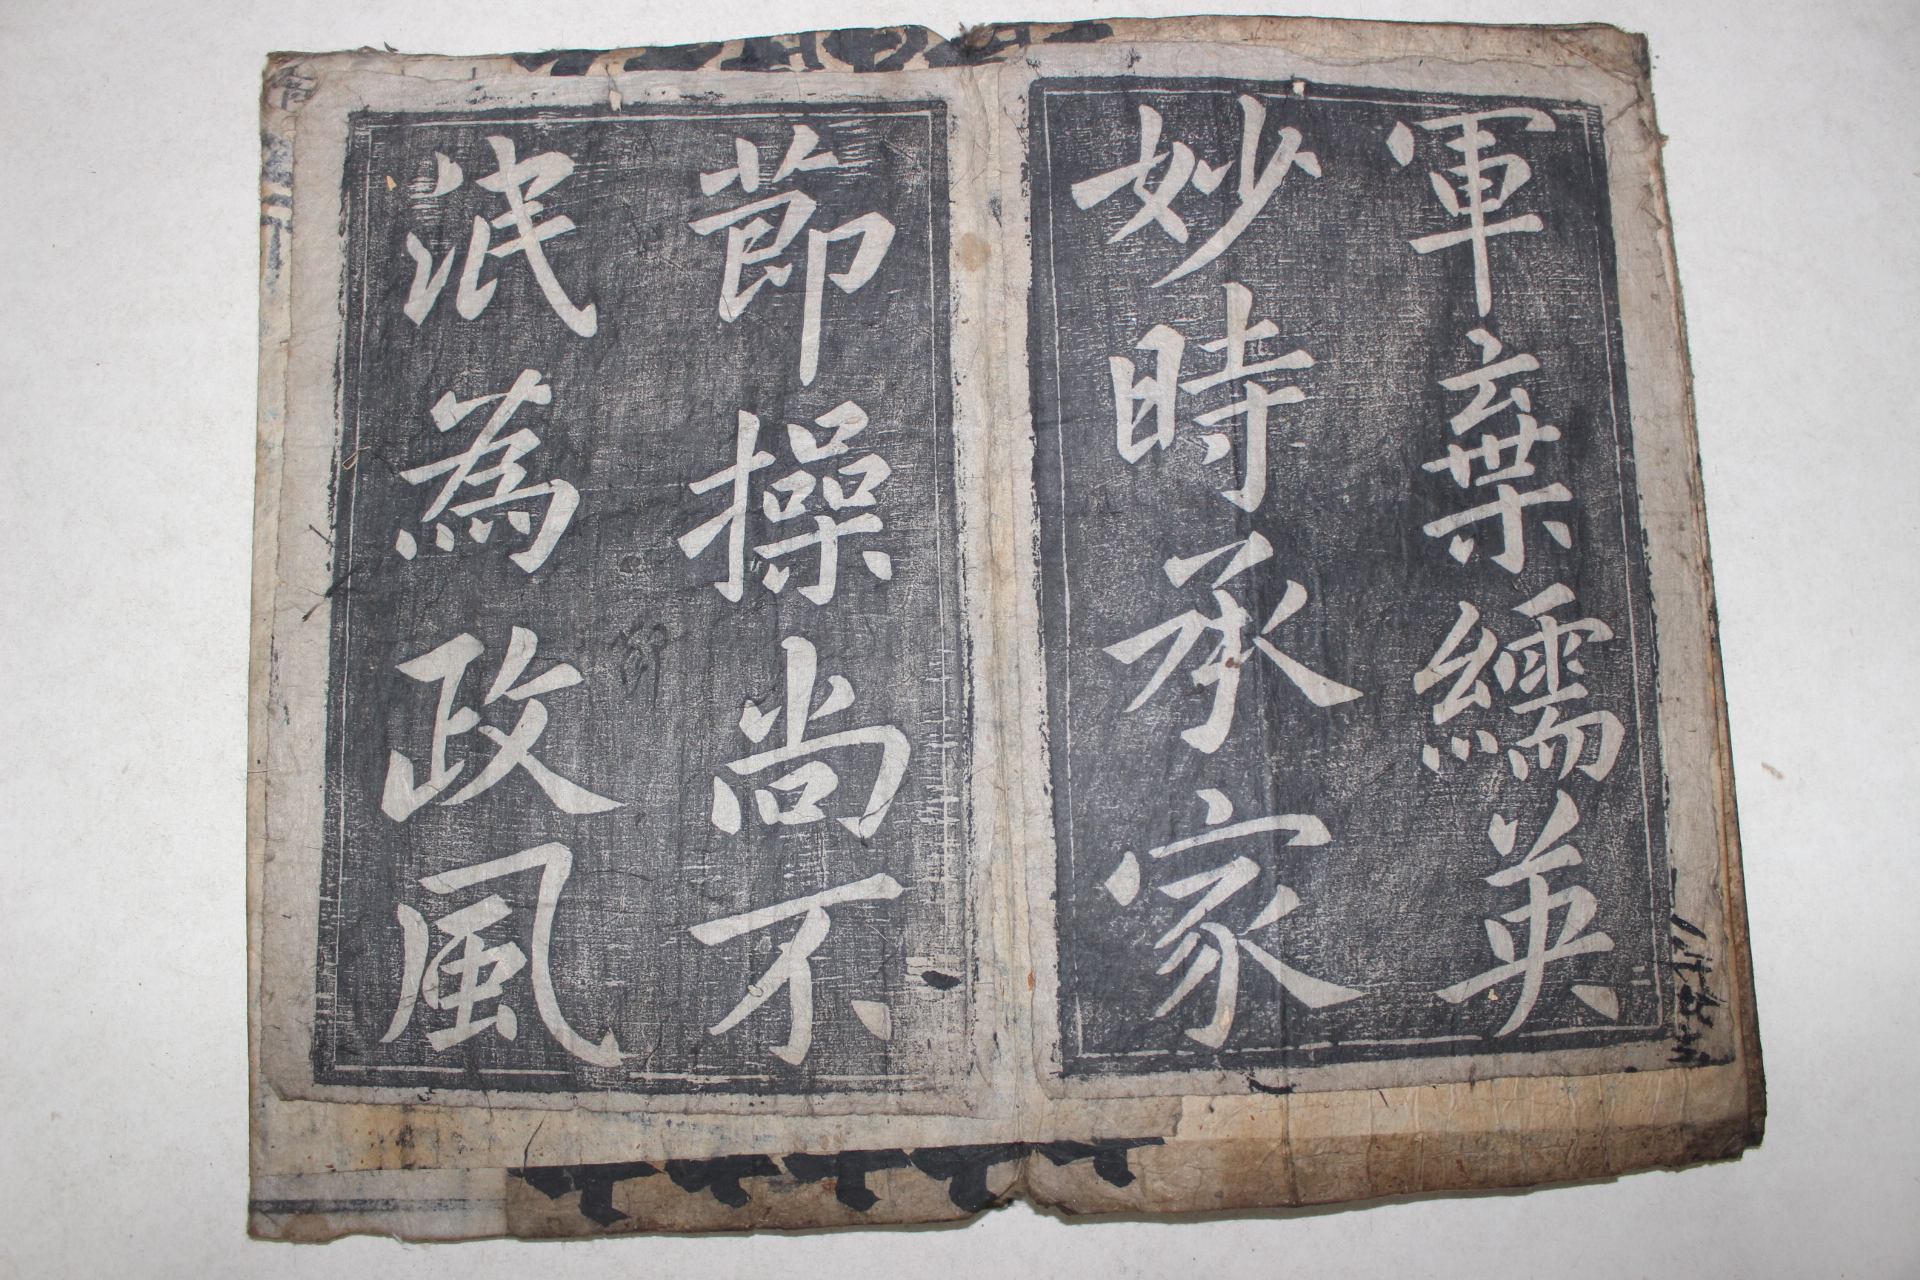 軍棄繻英
妙時承家
節操尚不
泯為政風
節